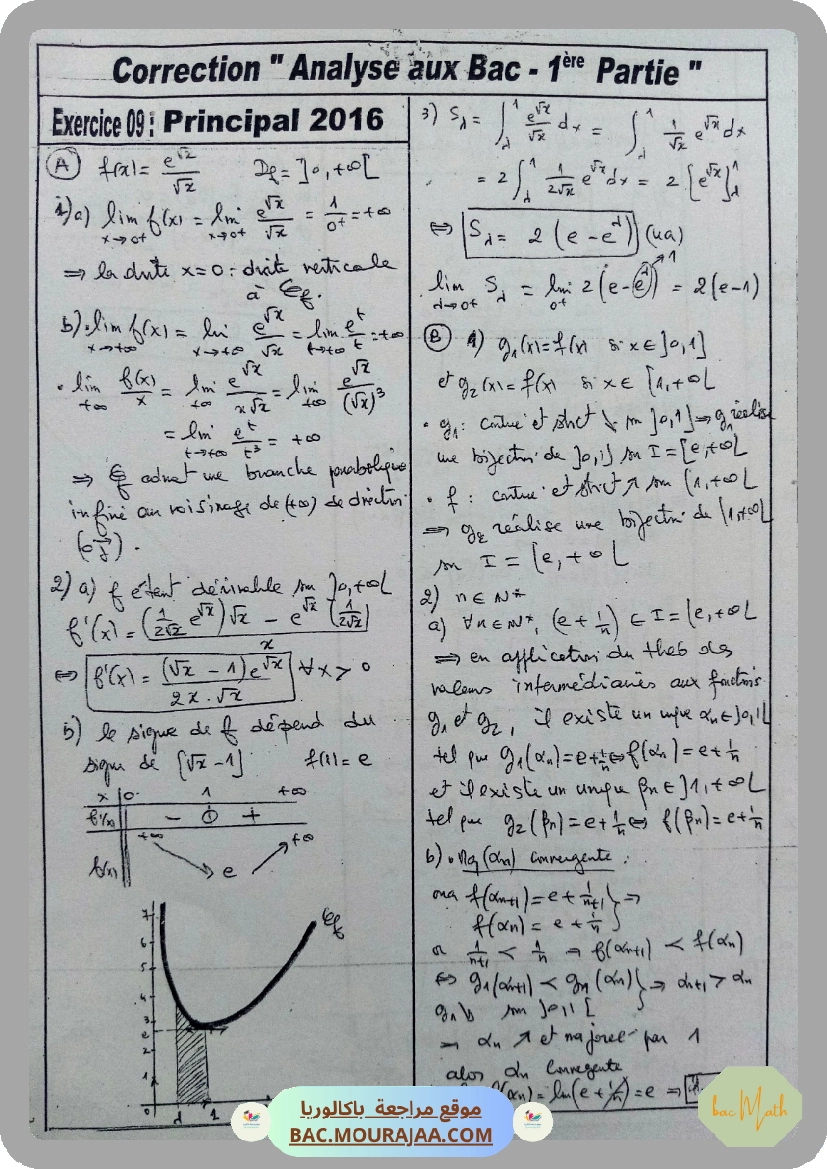 Correction " Analyse aux Bac - 1ère Partie "
Exercice 09 : Principal 2016
(A) f(x) = e^√x / √x   Df = ]0, +∞[
1) a) lim x→0+ f(x) = lim x→0+ e^√x / √x = 1/0+ = +∞
⇒ la droite x=0 : droite verticale
à Cf.
b) • lim x→+∞ f(x) = lim x→+∞ e^√x / √x = lim t→+∞ e^t / t = +∞
• lim +∞ f(x)/x = lim +∞ e^√x / x√x = lim +∞ e^√x / (√x)³
= lim t→+∞ e^t / t³ = +∞
⇒ Cf admet une branche parabolique
infinie au voisinage de (+∞) de direction
(o, j).
2) a) f étant dérivable sur ]0, +∞[
f'(x) = ((1/2√x) e^√x) √x − e^√x (1/2√x) / x
⇔ f'(x) = (√x − 1) e^√x / 2x·√x   ∀x > 0
b) le signe de f dépend du
signe de [√x − 1]   f(1) = e
x 0 1 +∞
f'(x) − 0 +
f(x) +∞ e +∞
7
6
5
4
3
e
2
1
0 λ 1
Cf
3) Sλ = ∫λ^1 e^√x / √x dx = ∫λ^1 1/√x e^√x dx
= 2 ∫λ^1 1/2√x e^√x dx = 2 [e^√x]λ^1
⇔ Sλ = 2 (e − e^λ) (ua)
lim λ→0+ Sλ = lim 0+ 2 (e − e^λ) → 1 = 2(e − 1)
(B) 1) g1(x) = f(x) si x ∈ ]0, 1]
et g2(x) = f(x) si x ∈ [1, +∞[
• g1 : continue et strict ↘ sur ]0, 1] ⇒ g1 réalise
une bijection de ]0, 1] sur I = [e, +∞[
• f : continue et strict ↗ sur [1, +∞[
⇒ g2 réalise une bijection de [1, +∞[
sur I = [e, +∞[
2) n ∈ N*
a) ∀n ∈ N*, (e + 1/n) ∈ I = [e, +∞[
⇒ en application du des
valeurs intermédiaires aux fonctions
g1 et g2, il existe un unique αn ∈ ]0, 1[
tel que g1(αn) = e + 1/n ⇔ f(αn) = e + 1/n
et il existe un unique βn ∈ ]1, +∞[
tel que g2(βn) = e + 1/n ⇔ f(βn) = e + 1/n
b) • Mq (αn) convergente :
ona f(αn+1) = e + 1/n+1 } ⇒
f(αn) = e + 1/n
or 1/n+1 < 1/n ⇒ f(αn+1) < f(αn)
⇔ g1(αn+1) < g1(αn) } ⇒ αn+1 > αn
g1 ↘ sur ]0, 1[
⇒ αn ↗ et majorée par 1
alors αn convergente
(αn) = lim (e + 1/n) = e ⇒
موقع مراجعة باكالوريا
BAC.MOURAJAA.COM
bac Math